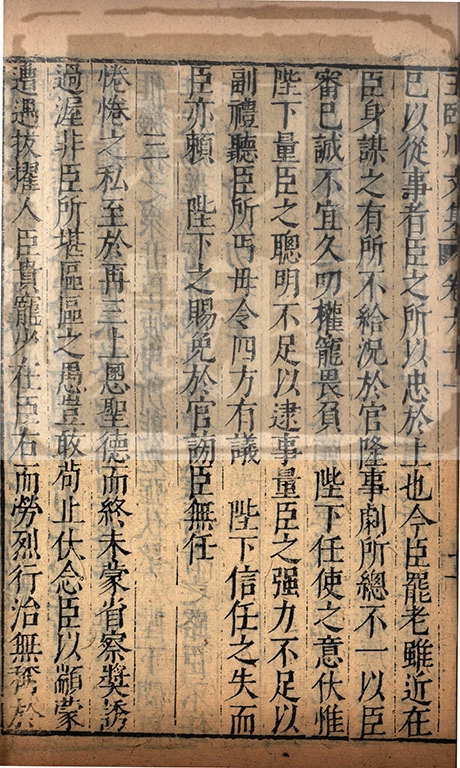 王臨川文集 卷六十一
已以從事者臣之所以忠於上也今臣罷老雖近在
臣身謀之有所不給況於官隆事劇所總不一以臣
審已誠不宜久叨權寵畏負 陛下任使之意伏惟
陛下量臣之聰明不足以逮事量臣之强力不足以
副禮聽臣所丐毋令四方有議 陛下信任之失而
臣亦賴 陛下之賜免於官謗臣無任
三
惓惓之私至於再三上恩聖德而終未蒙省察奬誘
過渥非臣所堪區區之愚豈敢苟止伏念臣以顓蒙
遭遇拔擢人臣貴寵少在臣右而勞烈行治無稱於